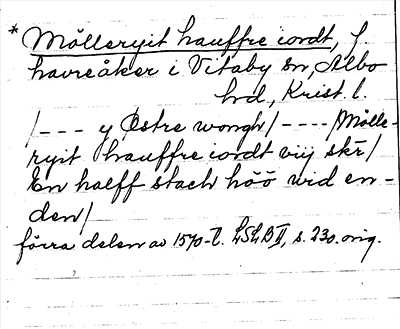 * Mölleryit hauffre iordt, f
havreåker i Vitaby sn, Albo
hd, Krist. l.
/--- y Østre wongh/----/Mölle-
ryit hauffre iordt viij skr/
En halff stach höö wid en-
den/
förra delen av 1570-t. LSLB II, s. 230. orig.